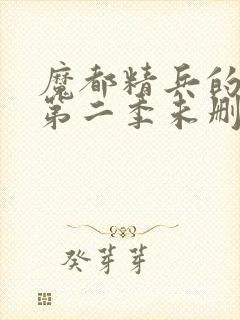 魔都精兵的
第二季未删
癸芽芽